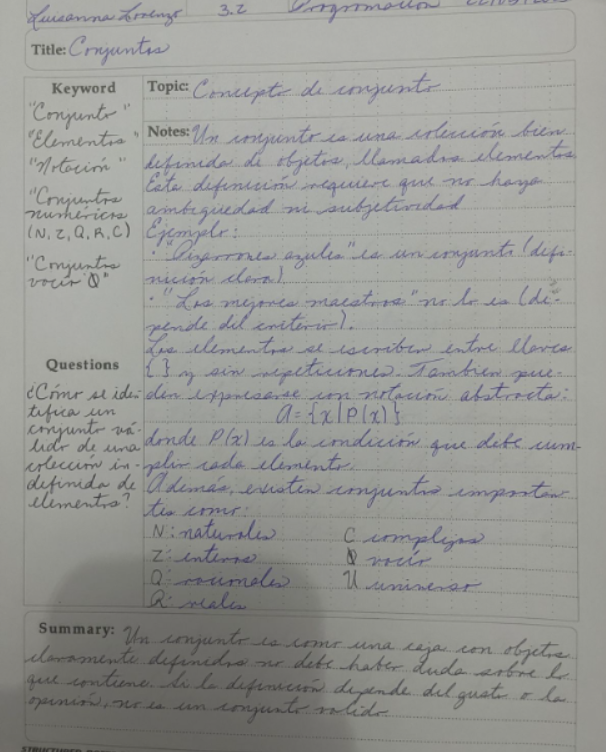 Luisanna Lorenzo 3.2 Programación
Title: Conjuntos
Keyword
"Conjunto"
"Elementos"
"Notación"
"Conjuntos
numéricos
(N, Z, Q, R, C)
"Conjuntos
vacío Ø"
Questions
¿Cómo se iden-
tifica un
conjunto vá-
lido de una
colección in-
definida de
elementos?
Topic: Concepto de conjunto
Notes: Un conjunto es una colección bien
definida de objetos, llamados elementos
Esta definición requiere que no haya
ambigüedad ni subjetividad
Ejemplo:
· "Pizarrones azules" es un conjunto (defi-
nición clara).
· "Los mejores maestros" no lo es (de-
pende del criterio).
Los elementos se escriben entre llaves
{ } y sin repeticiones. Tambien pue-
den expresarse con notación abstracta:
A = {x|P(x)}
donde P(x) es la condición que debe cum-
plir cada elemento.
Además, existen conjuntos importan-
tes como:
N: naturales C complejos
Z: enteros Ø vacío
Q: racionales U universo
R: reales
Summary: Un conjunto es como una caja con objetos
claramente definidos no debe haber duda sobre lo
que contiene. Si la definición depende del gusto o la
opinión, no es un conjunto valido